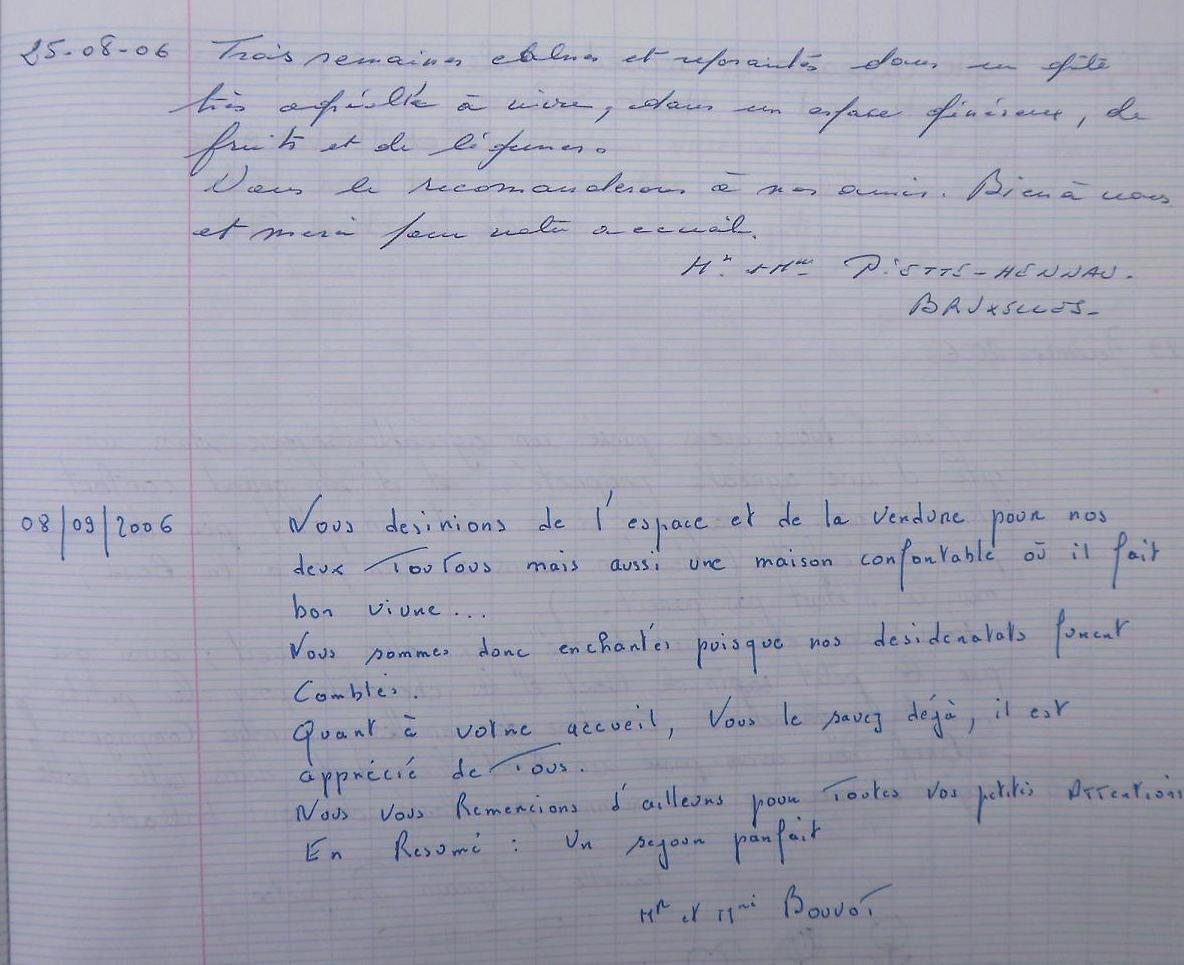 25-08-06 Trois semaines calmes et reposantes dans un gîte
très agréable à vivre, dans un espace généreux, de
fruits et de légumes.
Nous le recomanderons à nos amis. Bien à vous
et merci pour votre accueil.
Mr. et Mme PIETTE-HENNAU.
BRUXELLES-
08/09/2006 Nous desirions de l'espace et de la verdure pour nos
deux Toutous mais aussi une maison confortable où il fait
bon vivre...
Nous sommes donc enchantés puisque nos desideratats furent
Comblés.
Quant à votre accueil, Vous le savez déjà, il est
apprécié de Tous.
Nous vous Remercions d'ailleurs pour Toutes vos petites Attentions
En Resumé : Un sejour parfait
Mr et Mme Bouvot